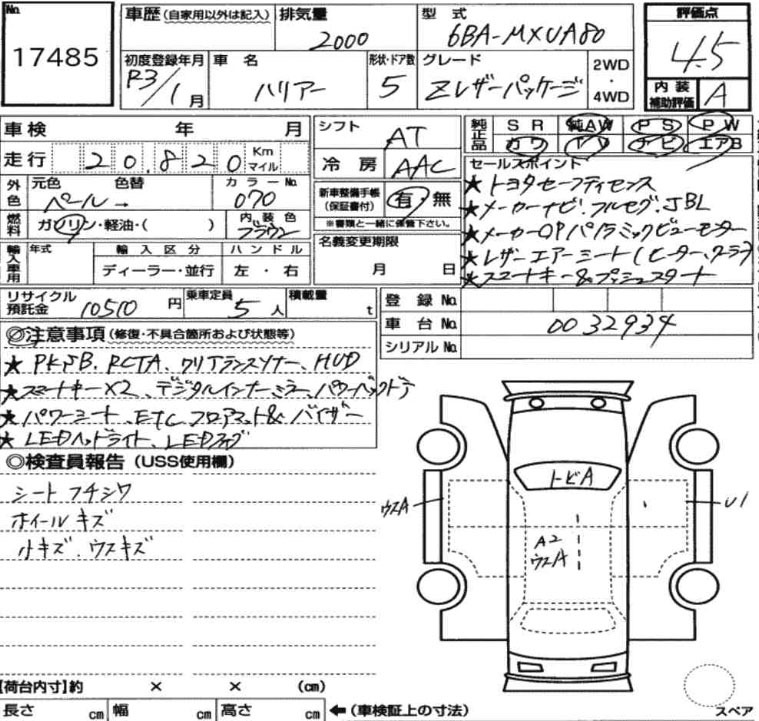 No. 17485
車歴 (自家用以外は記入)
排気量 2000
型式 6BA-MXUA80
評価点 4.5
初度登録年月 R3/1月
車名 ハリアー
形状・ドア数 5
グレード Zレザーパッケージ
2WD・4WD
内装補助評価 A
車検 年 月
シフト AT
純正品 SR 純AW PS PW
カワ TV ナビ エアB
走行 20,820 Km マイル
冷房 AAC
セールスポイント
外色 元色 パール→ 色替 カラーNo. 070
新車整備手帳(保証書付) 有・無
※書類と一緒に保管下さい。
★トヨタセーフティセンス
★メーカーナビ、フルセグ、JBL
燃料 ガソリン・軽油・( )
内装色 ブラウン
名義変更期限 月 日
★メーカーOPパノラミックビューモニター
★レザーエアーシート(ヒーター、クーラー)
★スマートキー&プッシュスタート
輸入車用 年式 輸入区分 ハンドル
ディーラー・並行 左・右
リサイクル預託金 10510円
乗車定員 5人
積載量 t
登録No.
車台No. 0032934
シリアルNo.
◎注意事項 (修復・不具合箇所および状態等)
★PKSB、RCTA、クリアランスソナー、HUD
★スマートキー×2、デジタルインナーミラー、パワーバックドア
★パワーシート、ETC、フロアマット&バイザー
★LEDヘッドライト、LEDフォグ
◎検査員報告 (USS使用欄)
シートフチシワ
ホイールキズ
小キズ、ウスキズ
トビA
ウスA
U1
A2
ウスA
【荷台内寸】約 × × (cm)
長さ cm 幅 cm 高さ cm ←(車検証上の寸法)
スペア